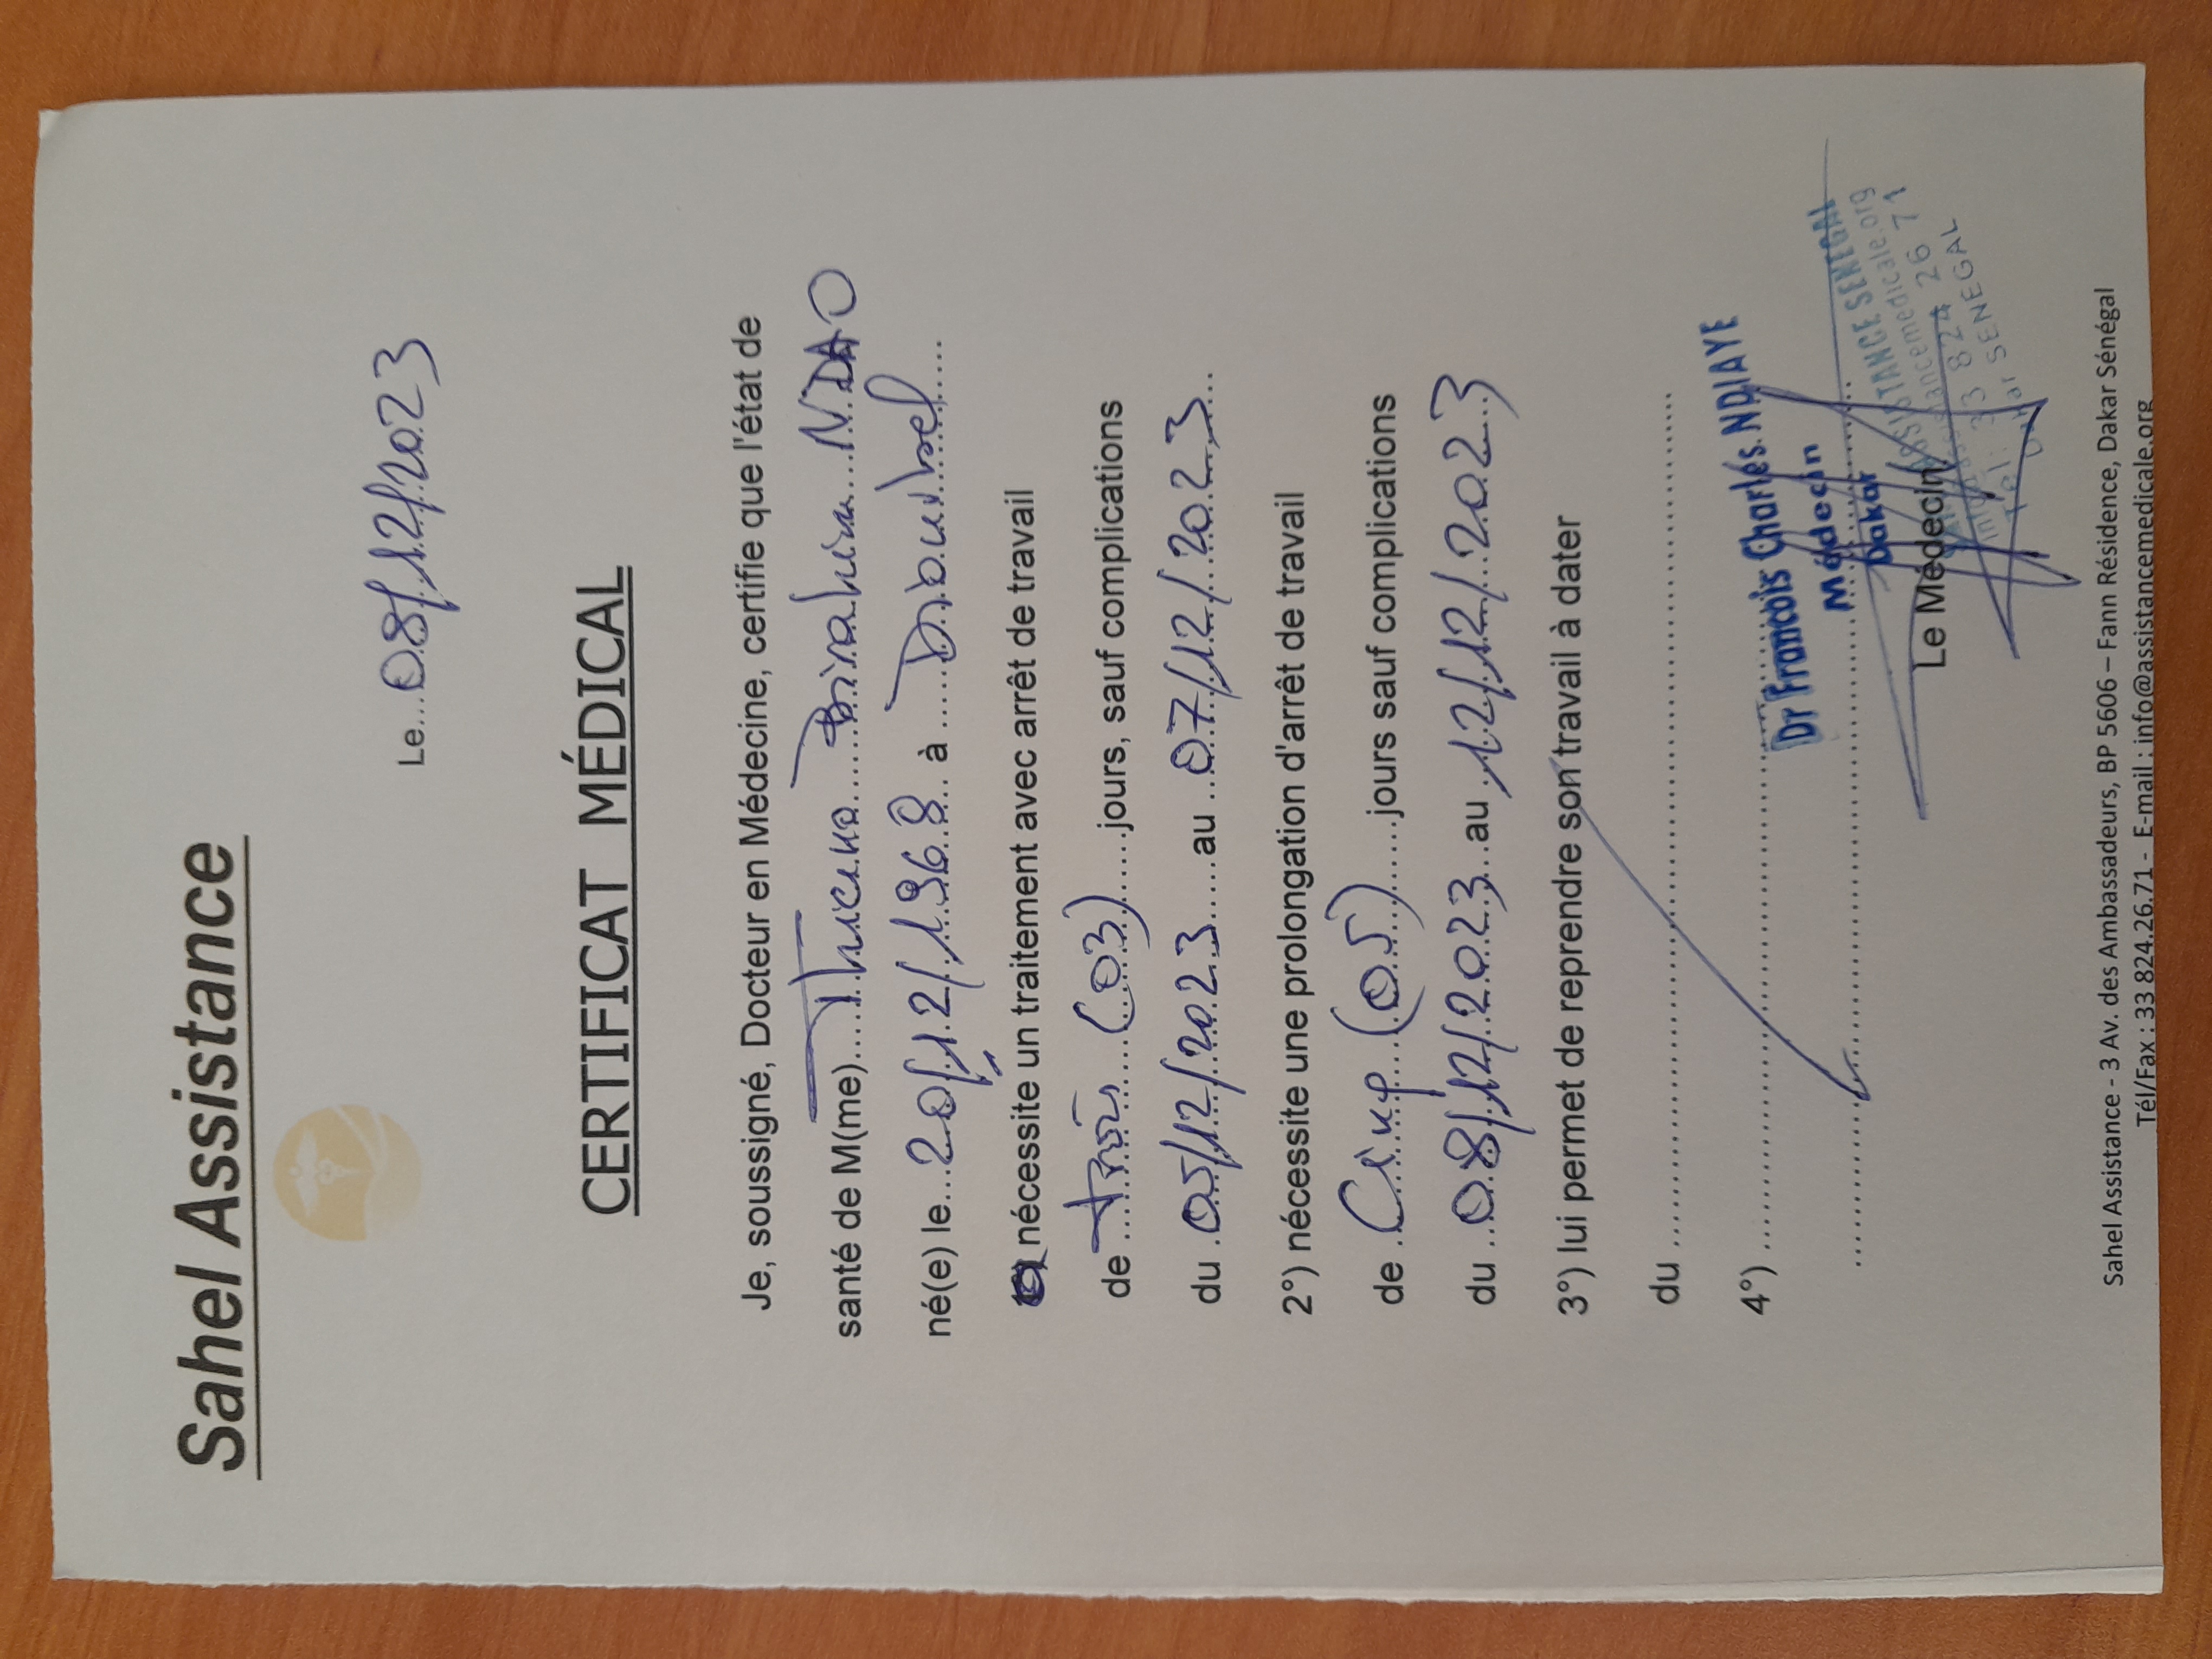 Sahel Assistance
Le...08/12/2023
CERTIFICAT MÉDICAL
Je, soussigné, Docteur en Médecine, certifie que l'état de
santé de M(me)....... Birahim...NDAO
né(e) le...20/12/1968... à .....Diourbel.....
nécessite un traitement avec arrêt de travail
de ...trois.....(03)......jours, sauf complications
du ..05/12/2023.......au ..07/12/2023...
2°) nécessite une prolongation d'arrêt de travail
de .Cinq...(05)......jours sauf complications
du ...08/12/2023...au .12/12/2023
3°) lui permet de reprendre son travail à dater
du ..........
4°) ..........
Dr Francois Charles NDIAYE
Médecin
Dakar
ASSISTANCE SENEGAL
assistancemedicale.org
Tel: 33 824 26 71
Dakar SENEGAL
Le Médecin
Sahel Assistance - 3 Av. des Ambassadeurs, BP 5606 – Fann Résidence, Dakar Sénégal
Tél/Fax : 33 824.26.71 - E-mail : info@assistancemedicale.org